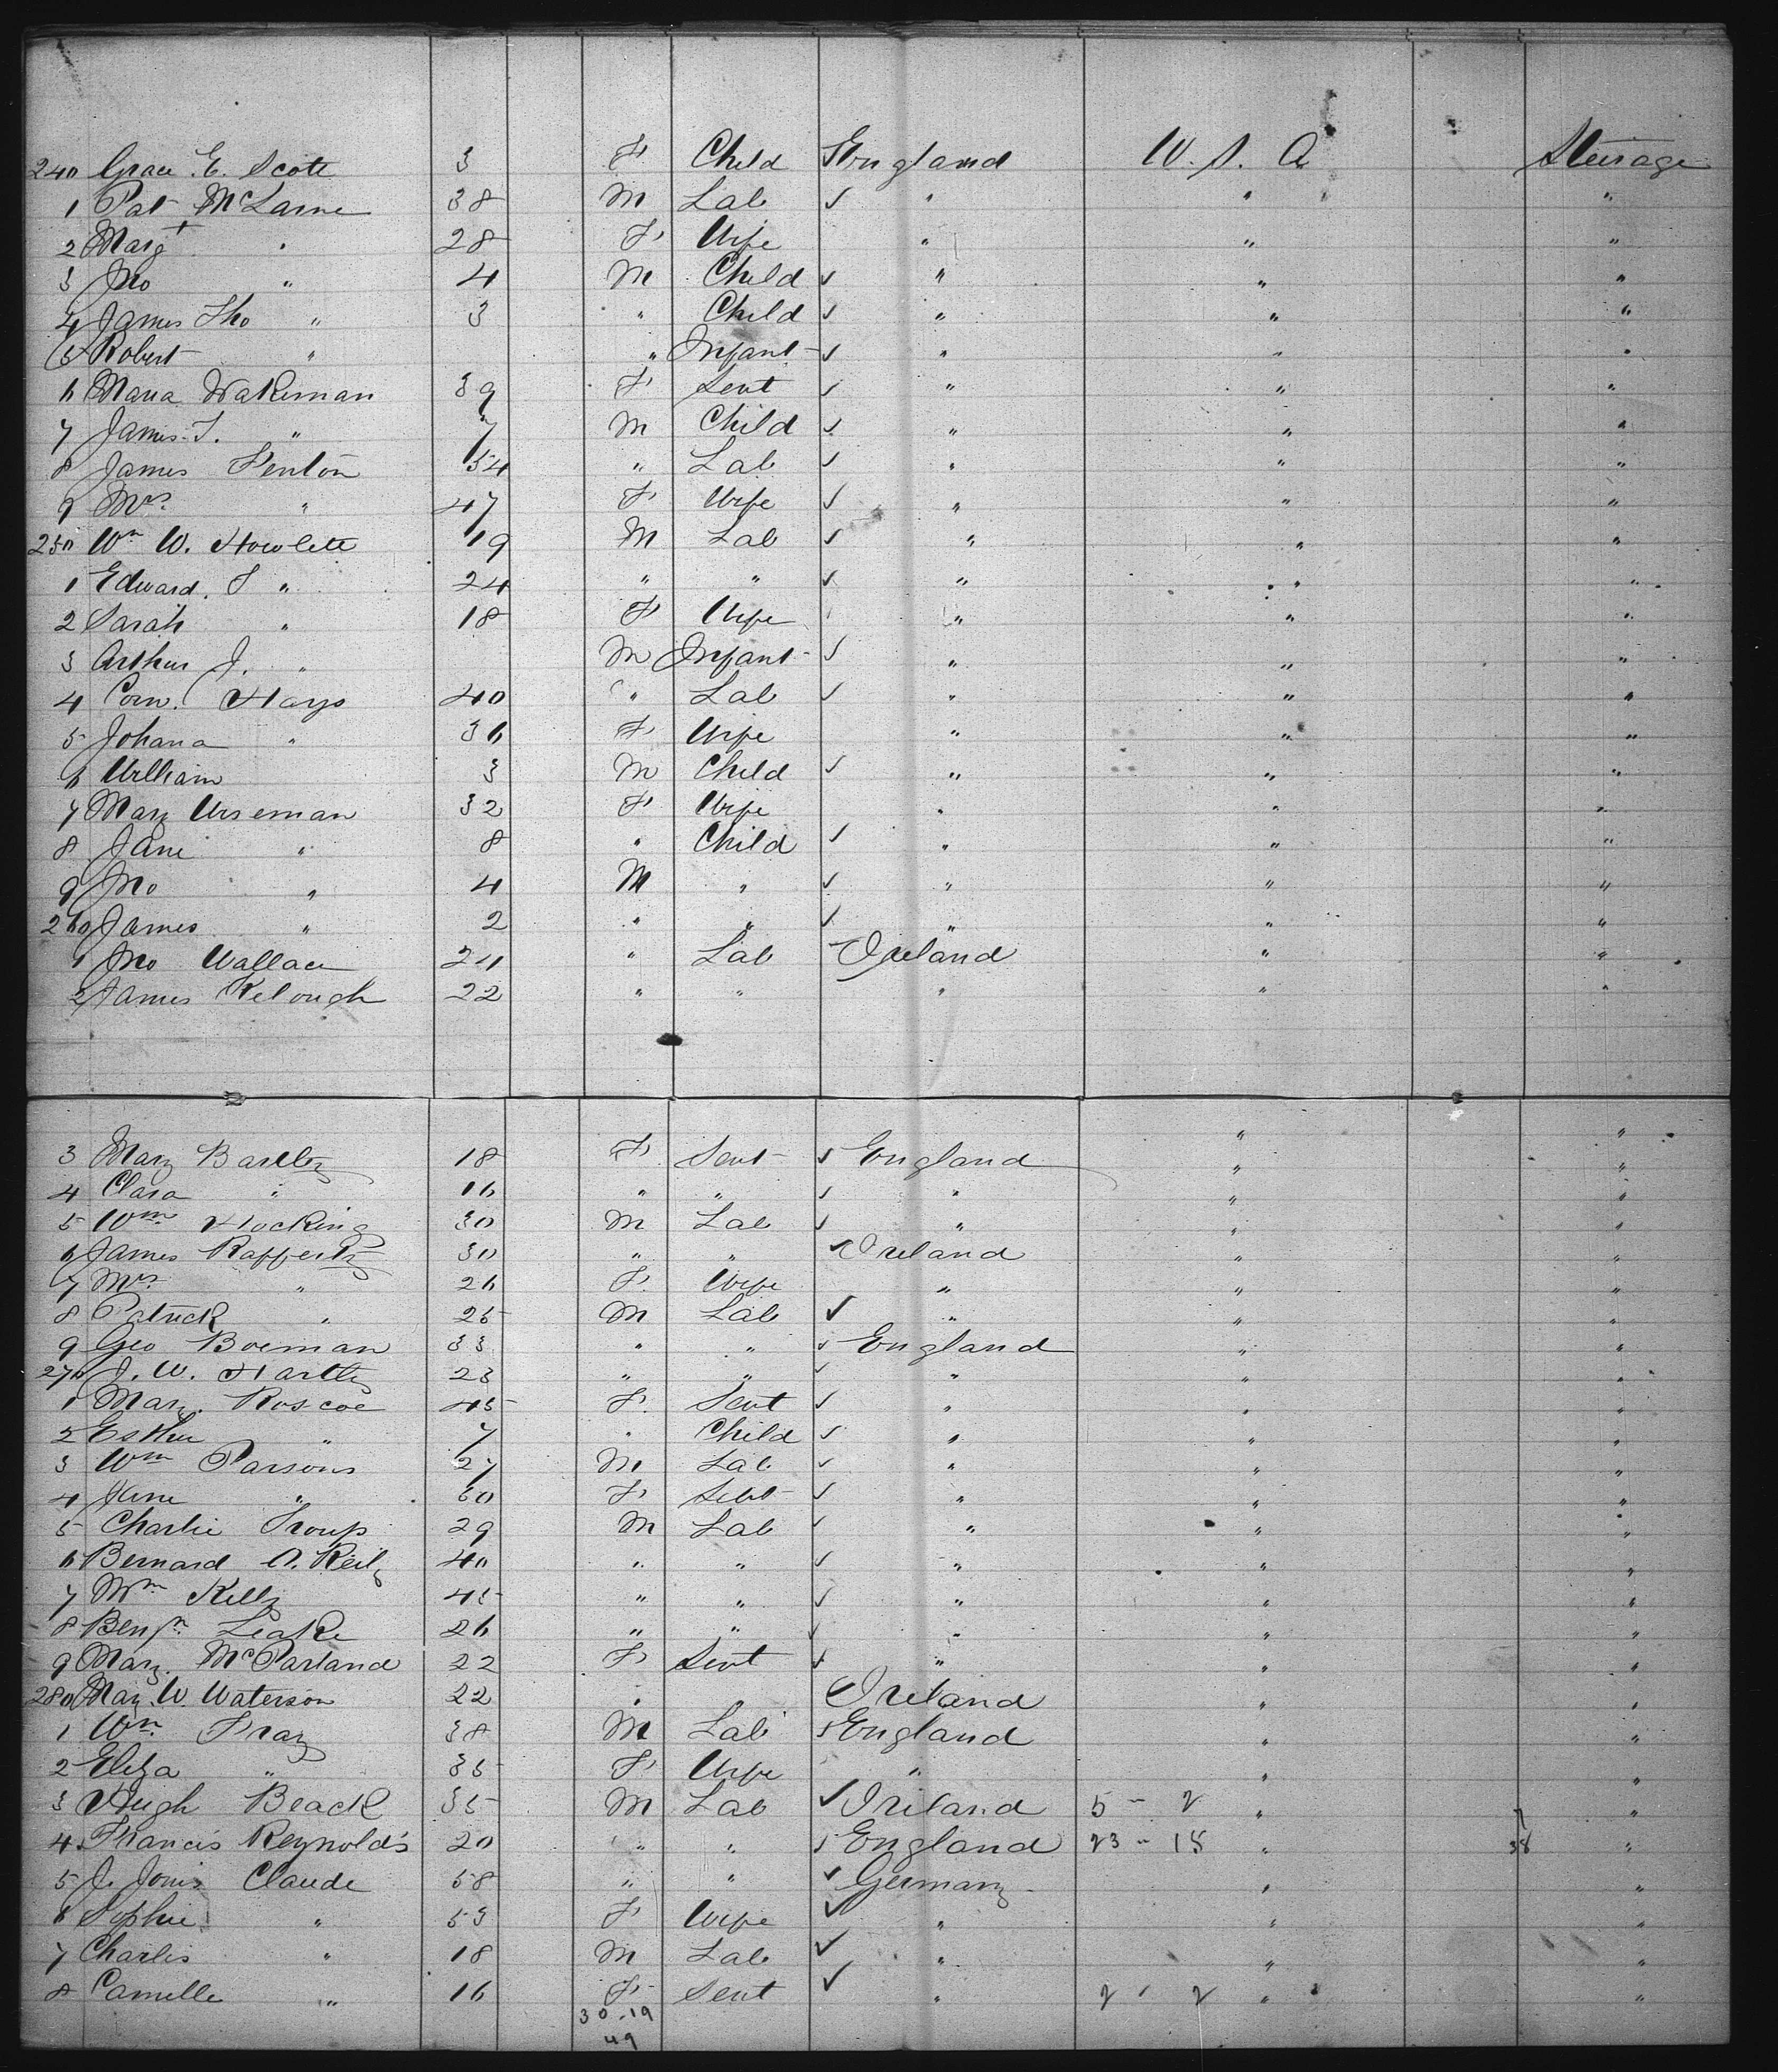 240 Grace E. Scott 3 F Child England U.S.A Steerage
1 Pat McLarne 38 M Lab ✓ " " "
2 Margt " 28 F Wife " " "
3 Jno " 4 M Child ✓ " " "
4 James Tho " 3 " Child ✓ " " "
5 Robert " " Infant ✓ " " "
6 Maria Wakeman 39 F Sevt ✓ " " "
7 James T. " 7 M Child ✓ " " "
8 James Fenton 54 " Lab ✓ " " "
9 Mrs " 47 F Wife ✓ " " "
250 Wm W. Howlett 19 M Lab ✓ " " "
1 Edward. T " 24 " " ✓ " " "
2 Sarah " 18 F Wife " " "
3 Arthur J. " M Infant ✓ " " "
4 Corn. Hays 40 " Lab ✓ " " "
5 Johana " 36 F Wife " " "
6 William 3 M Child ✓ " " "
7 Mary Wiseman 32 F Wife " " "
8 Jane " 8 " Child ✓ " " "
9 Jno " 4 M " ✓ " " "
260 James " 2 " " ✓ " " "
1 Jno Wallace 24 " Lab Ireland " "
2 James Kelough 22 " " " " "
" "
3 Mary Bartley 18 F Sevt ✓ England " "
4 Clara " 16 " " ✓ " " "
5 Wm Hocking 30 M Lab ✓ " " "
6 James Rafferty 30 " " ✓ Ireland " "
7 Mrs " 26 F Wife " " "
8 Patrick " 25 M Lab ✓ " " "
9 Geo Boeman 33 " " ✓ England " "
270 J. W. Hartly 23 " " ✓ " " "
1 Mary. Roscoe 45 F. Sevt ✓ " " "
2 Esther " 7 " Child ✓ " " "
3 Wm Parsons 27 M Lab ✓ " " "
4 Jane " 60 F Sevt ✓ " " "
5 Charlie Troup 29 M Lab ✓ " " "
6 Bernard O. Reily 40 " " ✓ " " "
7 Wm Kelly 45 " " ✓ " " "
8 Benjn Leake 26 " " ✓ " " "
9 Mary. McParland 22 F Sevt ✓ " " "
280 Mary W Waterson 22 " " Ireland " "
1 Wm Fray 38 M Lab ✓ England " "
2 Eliza " 35 F Wife " " "
3 Hugh Beack 35 M Lab ✓ Ireland 5 - 2 " "
4 Francis Reynolds 20 " " ✓ England 23 - 15 " 38 "
5 J. Jonis Claude 58 " " ✓ Germany " "
6 Sophie " 53 F Wife ✓ " " "
7 Charles " 18 M Lab ✓ " " "
8 Camille " 16 F Sevt ✓ " 2 ' 2 " "
30.19
49